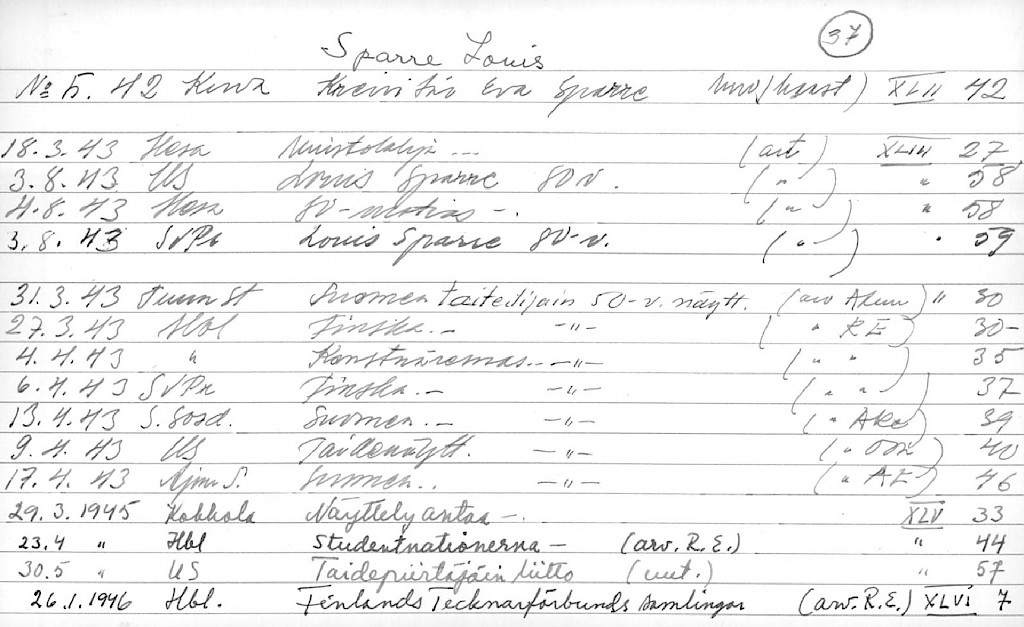 37
Sparre Louis
№ 5. 42 Kuva Kreivitär Eva Sparre XLII 42
18.3.43 Hesa Muistokalyp --- (art) XLIII 27
3.8.43 US Louis Sparre 80 v. ( " ) " 58
4.8.43 Hesa 80-vuotias -. ( " ) " 58
3.8.43 SvPr Louis Sparre 80-v. ( " ) " 59
31.3.43 Suomen taiteilijain 50-v. näytt. (arv " 30
27.3.43 Hbl Finska. - - " - ( " RE) 30-
4.4.43 " Konstnärernas. - - " - ( " " ) 35
6.4.43 SvPr Finska. - - " - ( " " ) 37
13.4.43 S. Sosd. Suomen. - - " - ( " ) 39
9.4.43 US Taidenäytt. - " - ( " ) 40
17.4.43 Ajan S. Suomen.. - " - ( " AE) 46
29.3.1945 Kokkola Näyttely antaa -. XLV 33
23.4 " Hbl Studentnationerna - (arv. R.E.) " 44
30.5 " US Taidepiirtäjäin liitto (uut.) " 57
26.1.1946 Hbl. Finlands Tecknarförbunds samlingar (arv. R.E.) XLVI 7